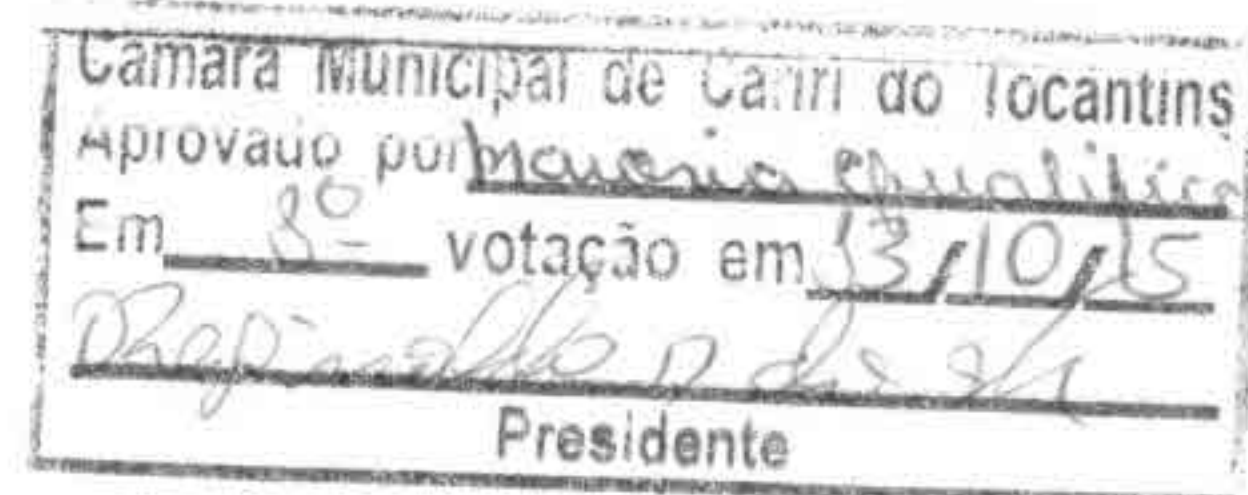 Câmara Municipal de Cariri do Tocantins
Aprovado por maioria qualifica
Em votação em 13/10/15
Presidente